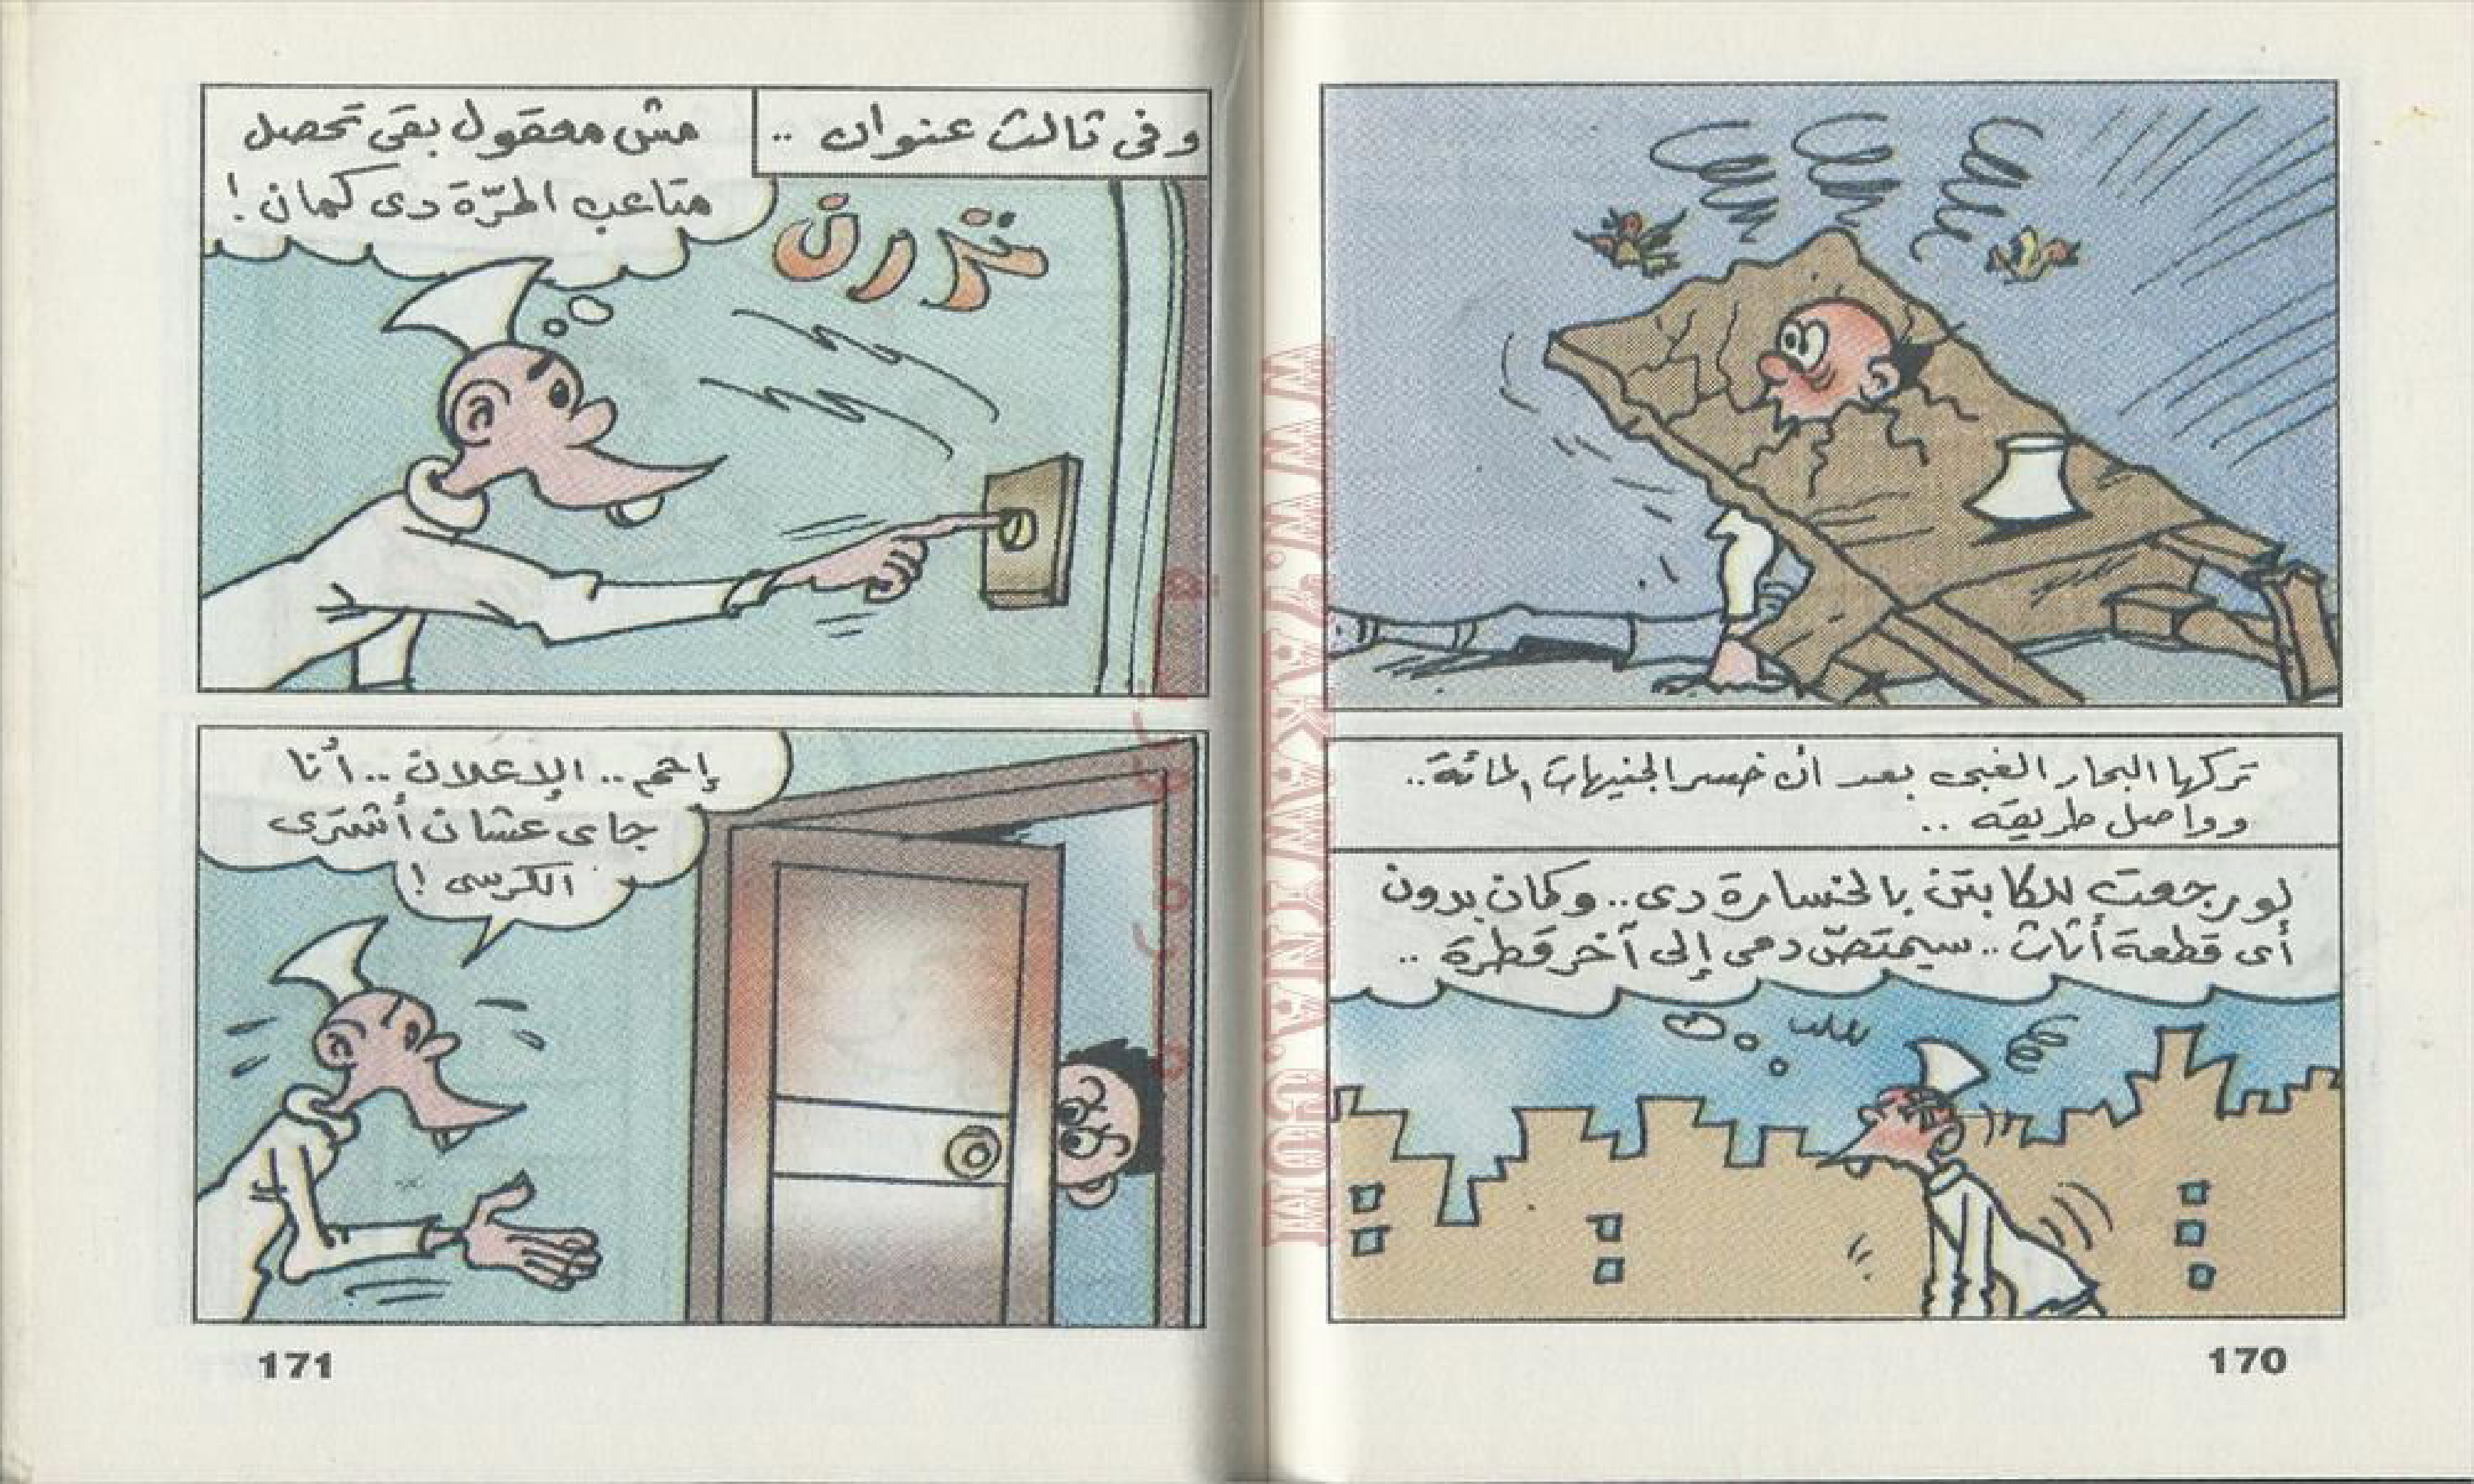 تركها البحار الغبى بعد أن خسر الجنيهات المائة..
وواصل طريقه ..
لو رجعت للكابتن بالخسارة دى.. وكمان بدون
أى قطعة أثاث .. سيمتصّ دمى إلى آخر قطرة ..
170
وفى تالت عنوان ..
مش معقول بقى تحصل
متاعب المرّة دى كمان !
ترررن
إحم .. الإعلان .. أنا
جاى عشان أشترى
الكرسى !
171